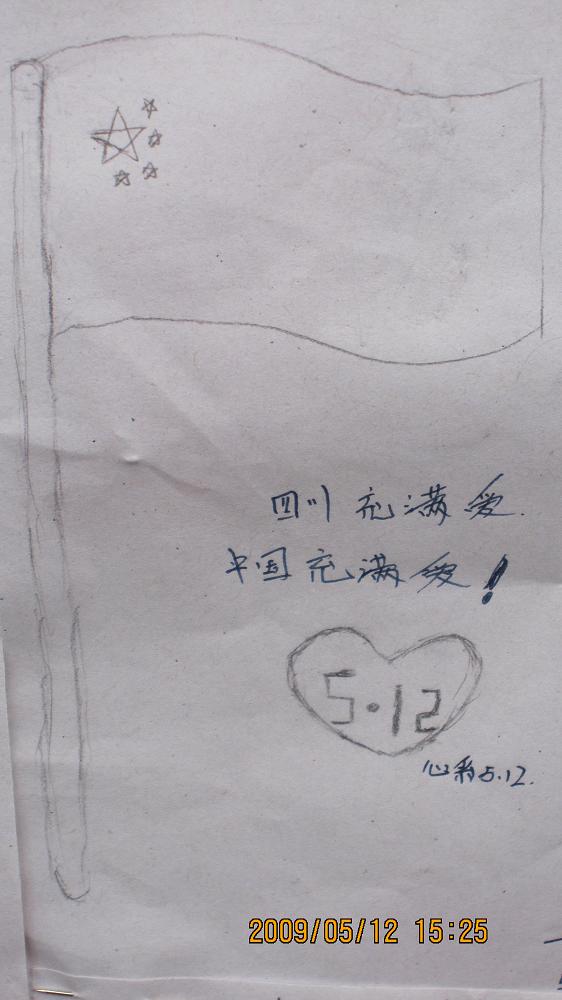 四川充满爱.
中国充满爱!
5·12
心系5.12.
2009/05/12 15:25